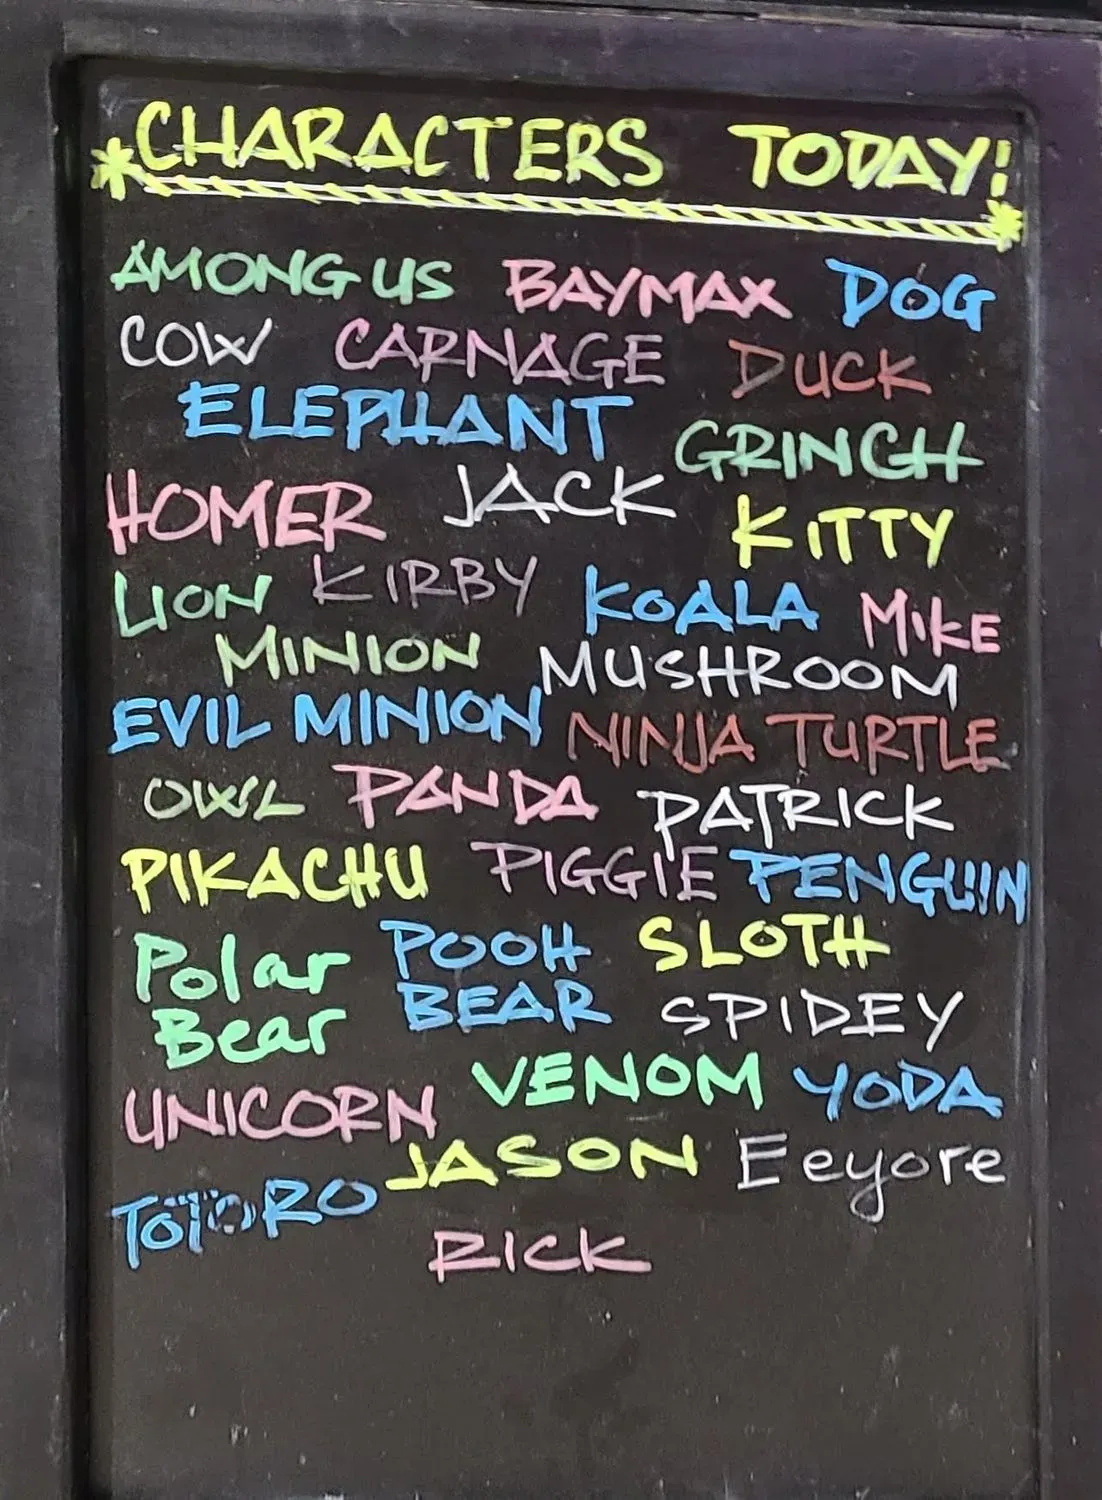 CHARACTERS TODAY!
AMONG US BAYMAX DOG
COW CARNAGE DUCK
ELEPHANT GRINCH
HOMER JACK KITTY
LION KIRBY KOALA MIKE
MINION MUSHROOM
EVIL MINION NINJA TURTLE
OWL PANDA PATRICK
PIKACHU PIGGIE PENGUIN
Polar Bear POOH BEAR SLOTH
SPIDEY
UNICORN VENOM YODA
JASON Eeyore
TOTORO
RICK